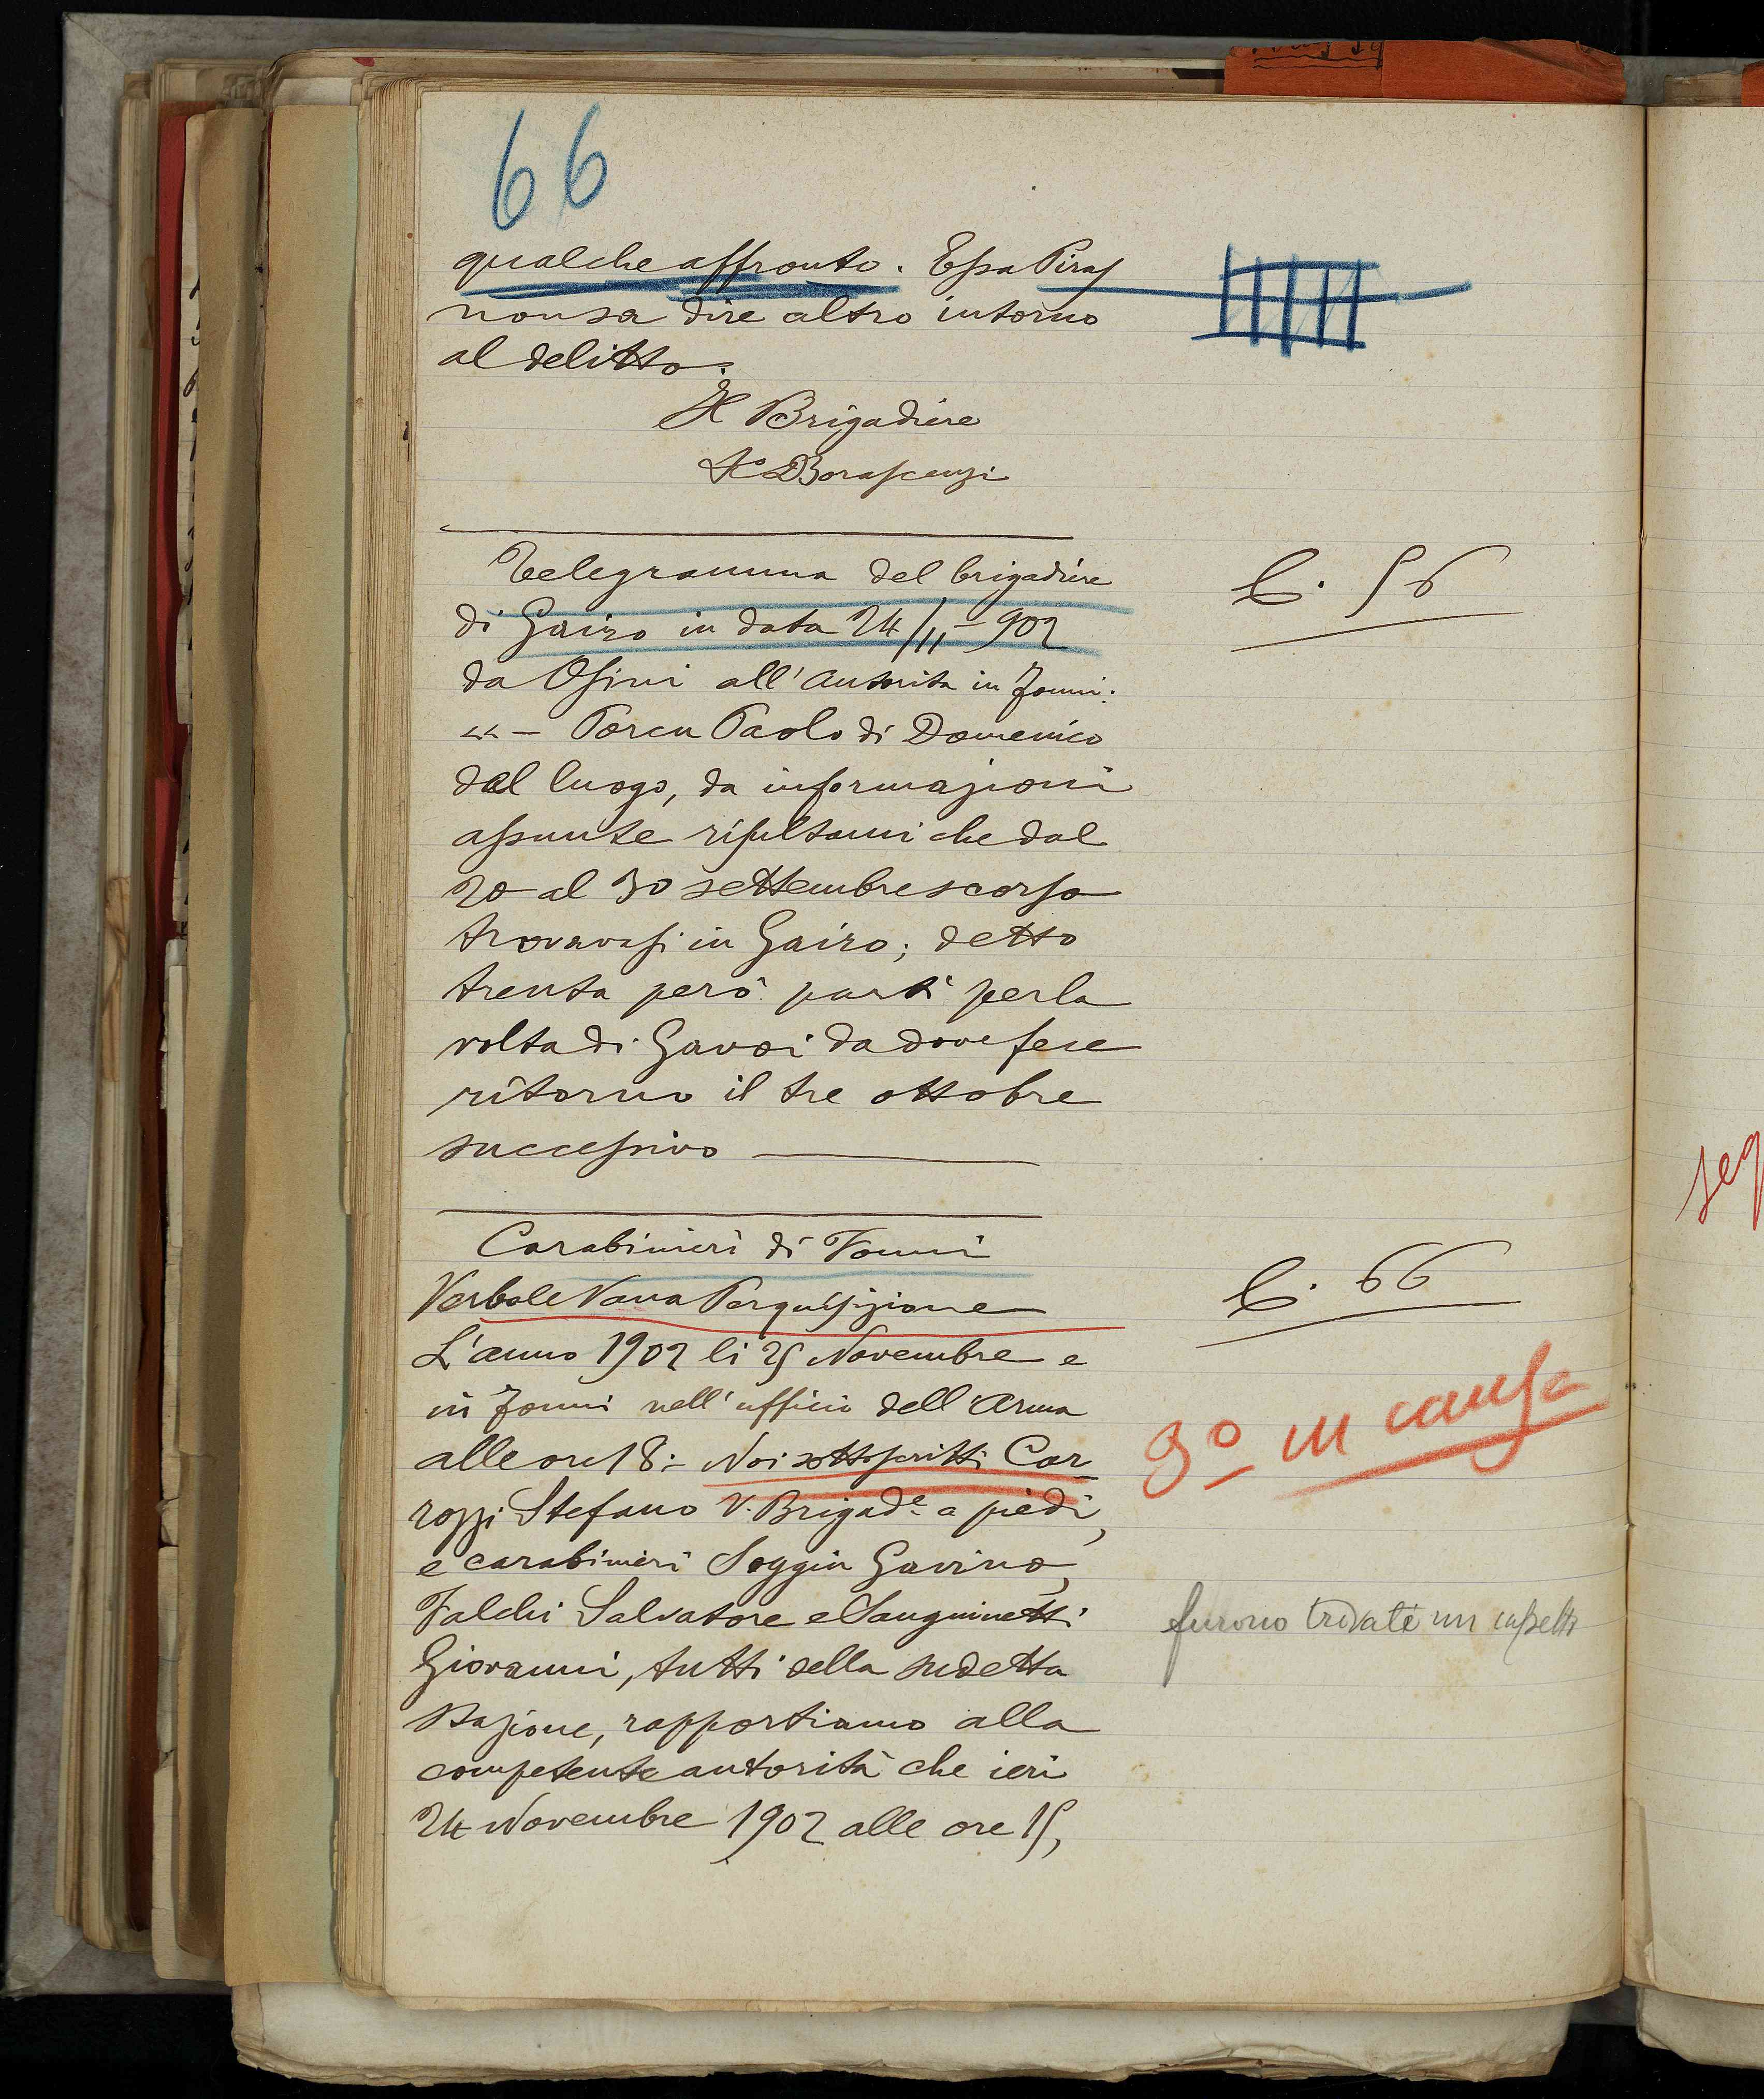 66
qualche affronto. Essa Piras
non sa dire altro intorno
al delitto.
Il Brigadiere
Telegramma del brigadiere
di Gairo in data 24/11-902
da Osini all'Autorita in Fonni:
"- Porcu Paolo di Domenico
del luogo, da informazioni
assunte risultami che dal
20 al 30 settembre scorso
trovavasi in Gairo; detto
trenta però partì per la
volta di Gavoi da dove fece
ritorno il tre ottobre
successivo
C. 56
Carabinieri di Fonni
Verbale Vana Perquisizione
L'anno 1902 li 25 Novembre e
in Fonni nell'ufficio dell'Arma
alle ore 18:- Noi sottoscritti Car-
rozzi Stefano V. Brigade a piedi,
e carabinieri Soggiu Gavino,
Falchi Salvatore e Sanguinetti
Giovanni, tutti della sudetta
Stazione, rapportiamo alla
competente autorità che ieri
24 Novembre 1902 alle ore 15,
C. 66
3º in causa
furono trovati un
seq